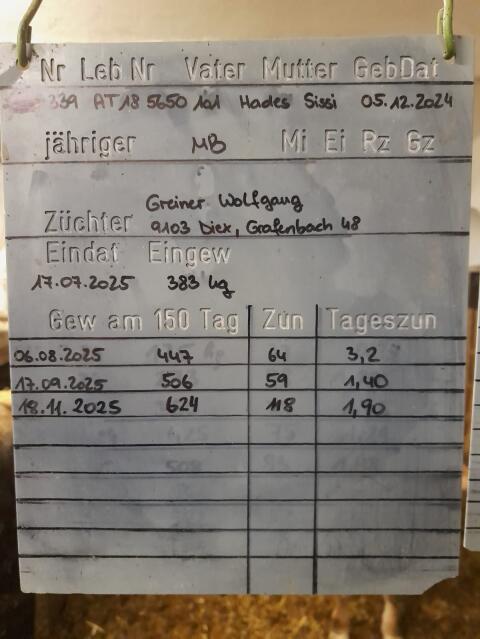 Nr Leb Nr Vater Mutter GebDat
339 AT18 5650 101 Hades Sissi 05.12.2024
jähriger MB Mi Ei Rz Gz
Greiner Wolfgang
Züchter 9103 Diex, Grafenbach 48
Eindat Eingew
17.07.2025 383 kg
Gew am 150 Tag Zun Tageszun
06.08.2025 447 64 3,2
17.09.2025 506 59 1,40
18.11.2025 624 118 1,90